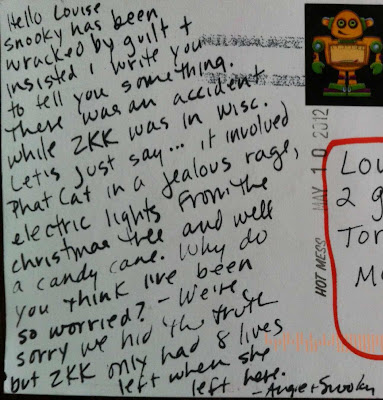 Hello Louise
snooky has been
wracked by guilt +
insisted I write you
to tell you something.
There was an accident
while ZKK was in Wisc.
Let's just say... it involved
Phat Cat in a jealous rage,
electric lights from the
christmas tree and well
a candy cane. Why do
you think I've been
so worried? - We're
sorry we hid the truth
but ZKK only had 8 lives
left when she
left here.
- Angie + Snooky
HOT MESS MAY 10 2012
Lou
2 g
Tor
M